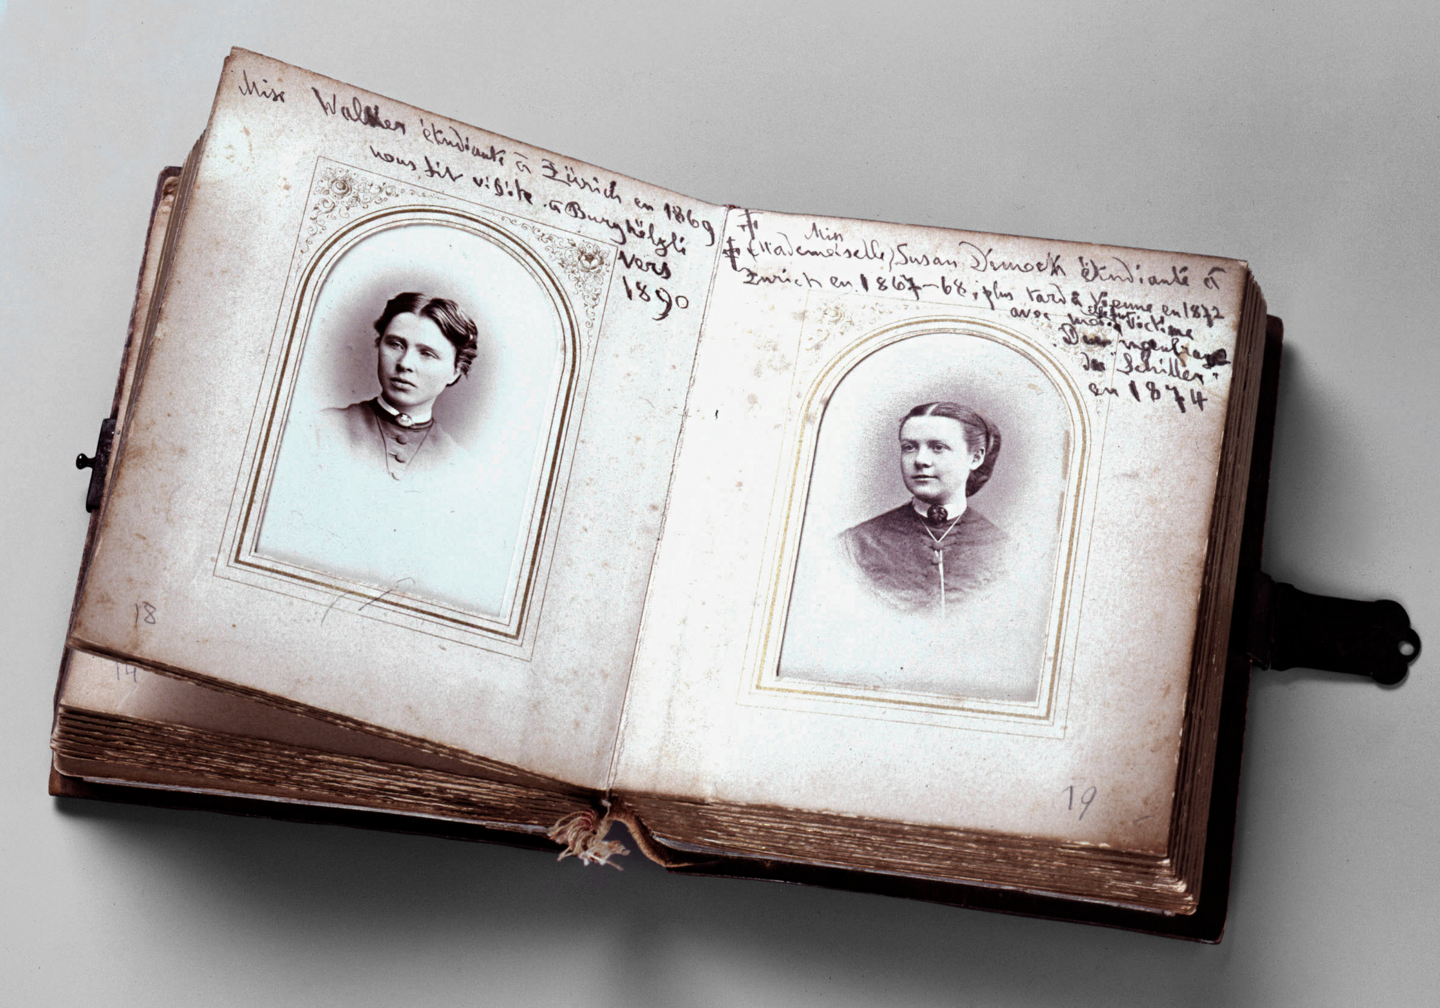 Miss Walker étudiante à Zürich en 1869
nous fit visite à Burghölzli
vers
1890
18
14
Miss
(Mademoiselle) Susan Dimock étudiante à
Zurich en 1867-68, plus tard à Vienne en 1872
avec moi, victime
du
du Schiller"
en 1874
19